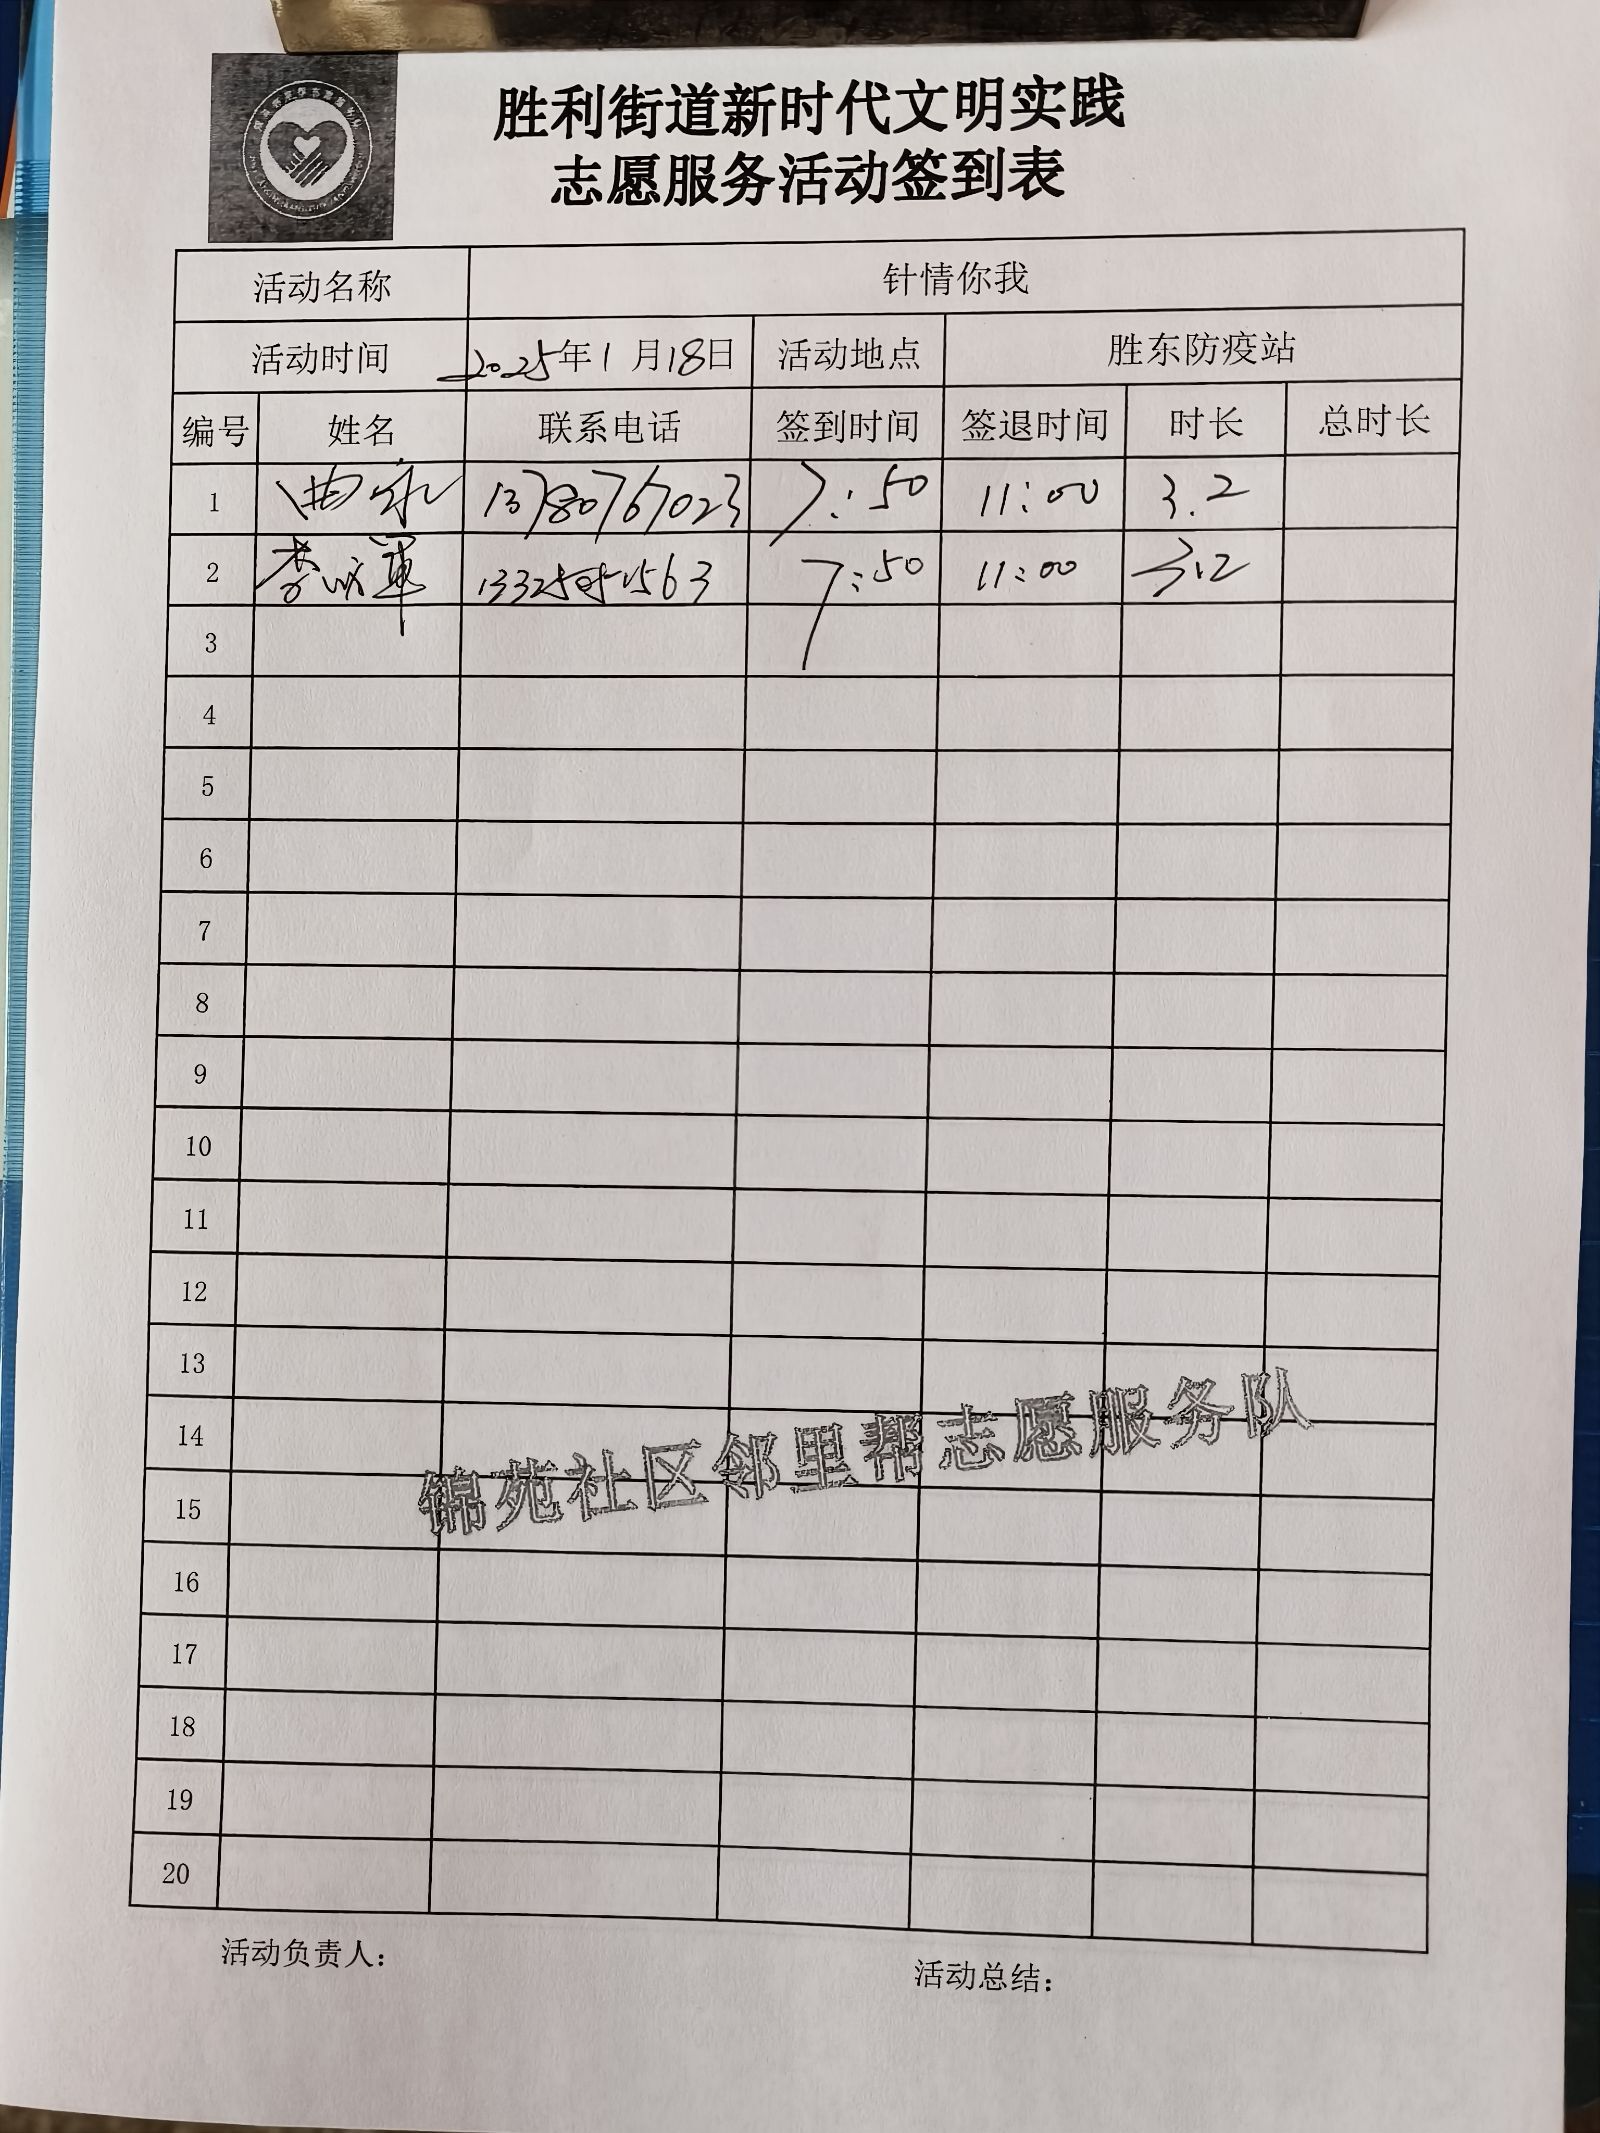 胜利街道新时代文明实践
志愿服务活动签到表
活动名称 针情你我
活动时间 2025年1月18日 活动地点 胜东防疫站
编号 姓名 联系电话 签到时间 签退时间 时长 总时长
1 曲永 13780767023 7:50 11:00 3.2
2 李 軍 7:50 11:00 3.2
3
4
5
6
7
8
9
10
11
12
13
14
锦苑社区邻里帮志愿服务队
15
16
17
18
19
20
活动负责人: 活动总结: